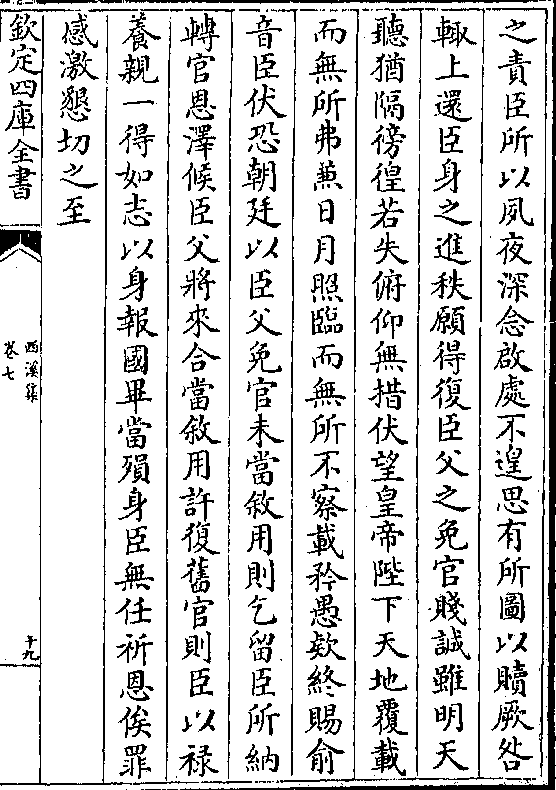 之責臣所以夙夜深念啟處不遑思有所圖以贖厥咎
輙上還臣身之進秩願得復臣父之免官賤誠雖明天
聽猶隔徬徨若失俯仰無措伏望皇帝陛下天地覆載
而無所弗燾日月照臨而無所不察載矜愚欵終賜俞
音臣伏恐朝廷以臣父免官未當敘用則乞留臣所納
轉官恩澤候臣父將來合當敘用許復舊官則臣以祿
養親一得如志以身報國畢當殞身臣無任祈恩俟罪
感激懇切之至
欽定四庫全書
西溪集
卷七
十九